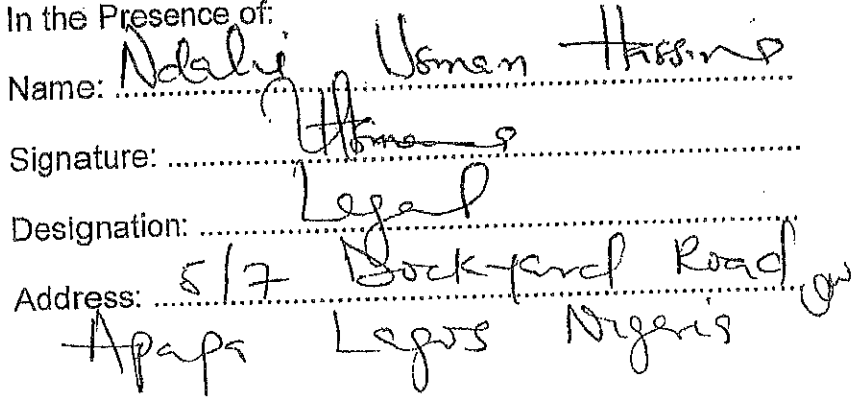 In the Presence of:
Name: Ndalij Usman Hassana
Signature: Usman
Designation: Legal
Address: 5/7 Dockyard Road
Apapa Lagos Nigeria